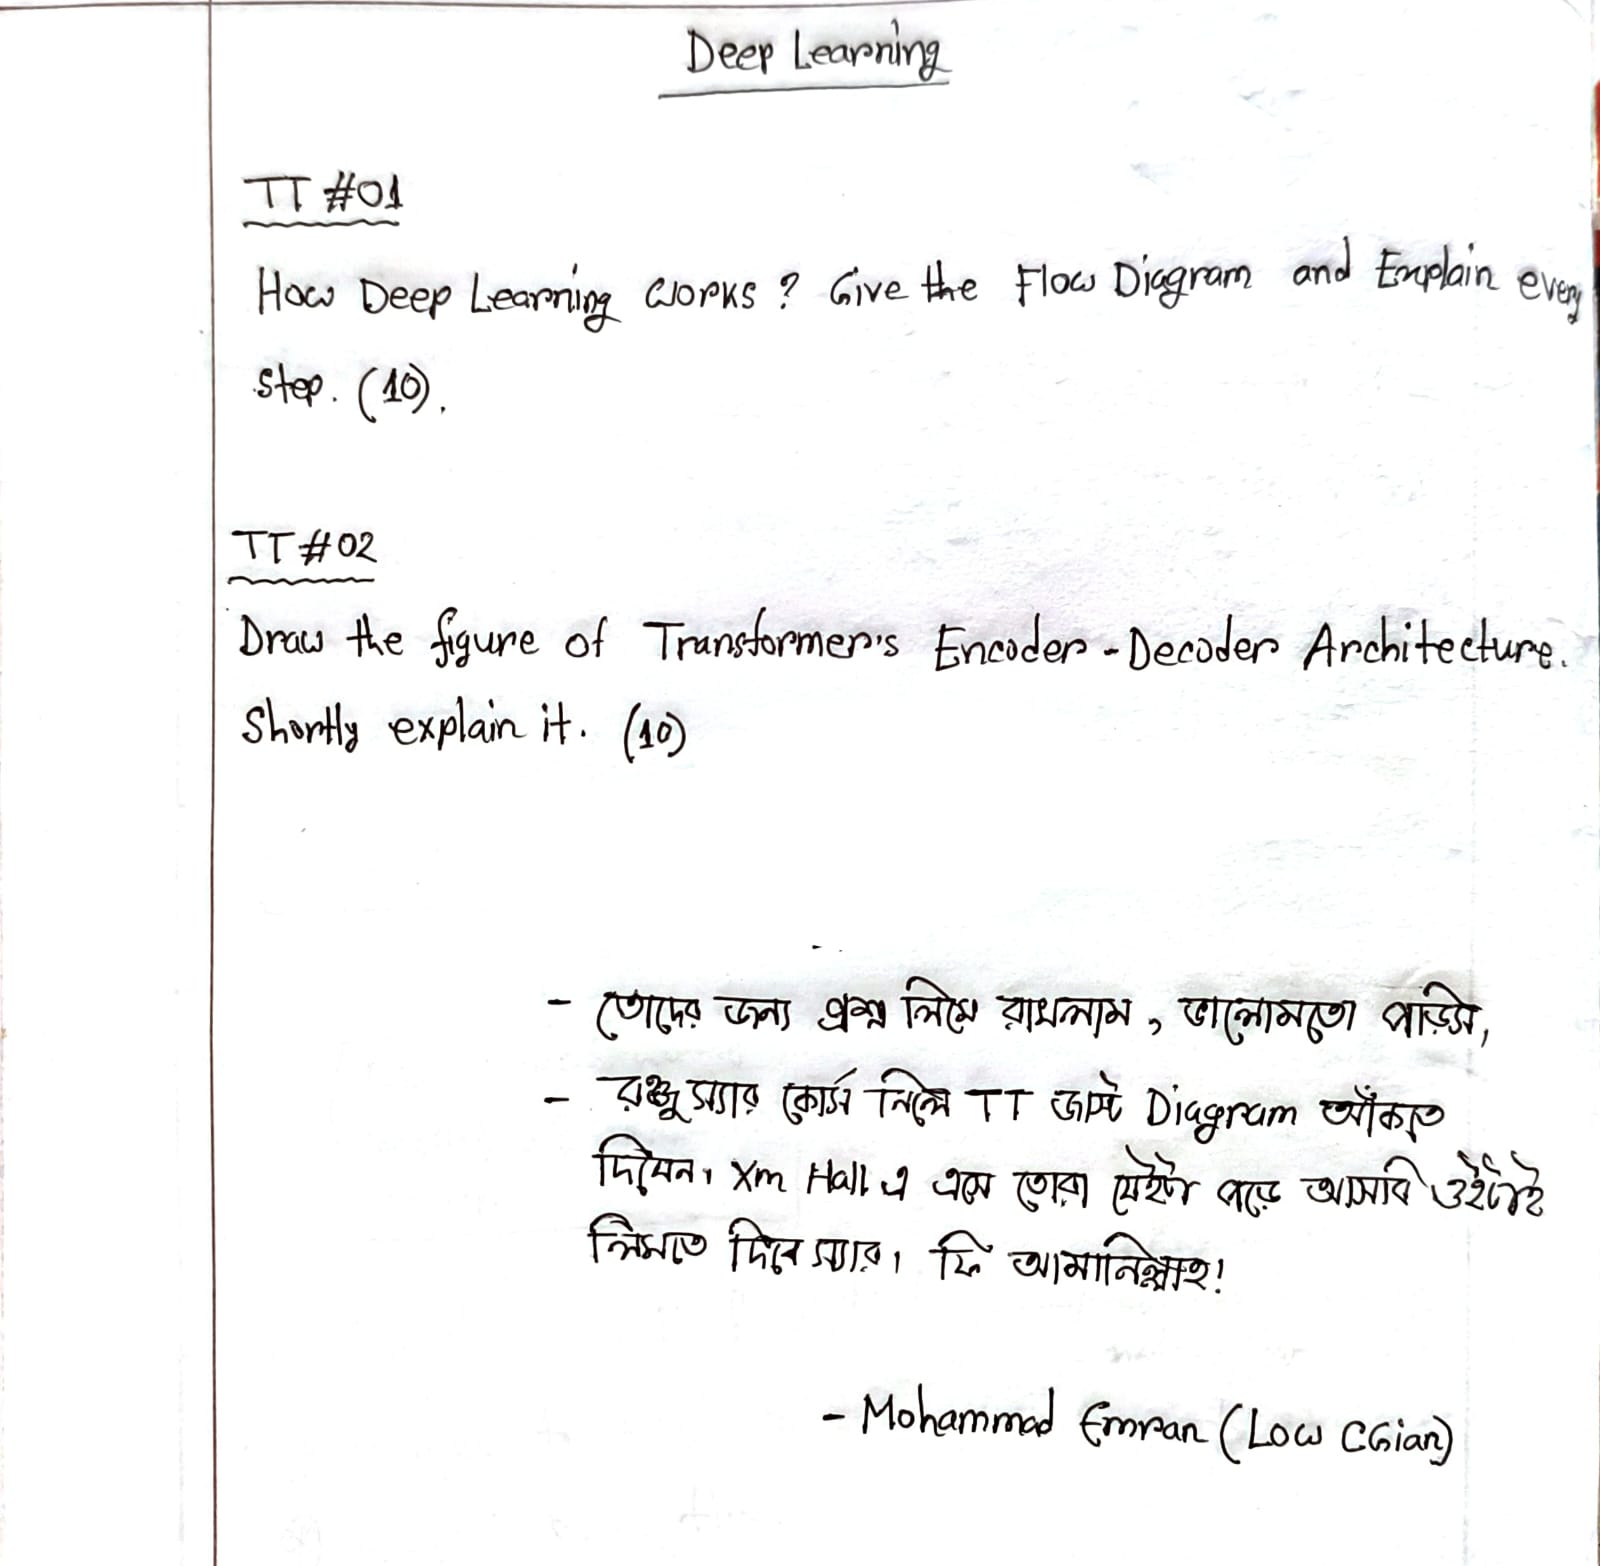 Deep Learning
TT #01
How Deep Learning works? Give the Flow Diagram and Explain every
step. (10).
TT #02
Draw the figure of Transformer's Encoder-Decoder Architecture.
Shortly explain it. (10)
- তোদের জন্য প্রশ্ন লিখে রাখলাম, ভালোমতো পড়িস,
- রঞ্জু স্যার কোর্স নিলে TT জাস্ট Diagram আঁকতে
দিবেন। Xm Hall এ এসে তোরা যেইটা পড়ে আসবি ওইটাই
লিখতে দিবে স্যার। ফি আমানিল্লাহ!
- Mohammad Emran (Low CGian)